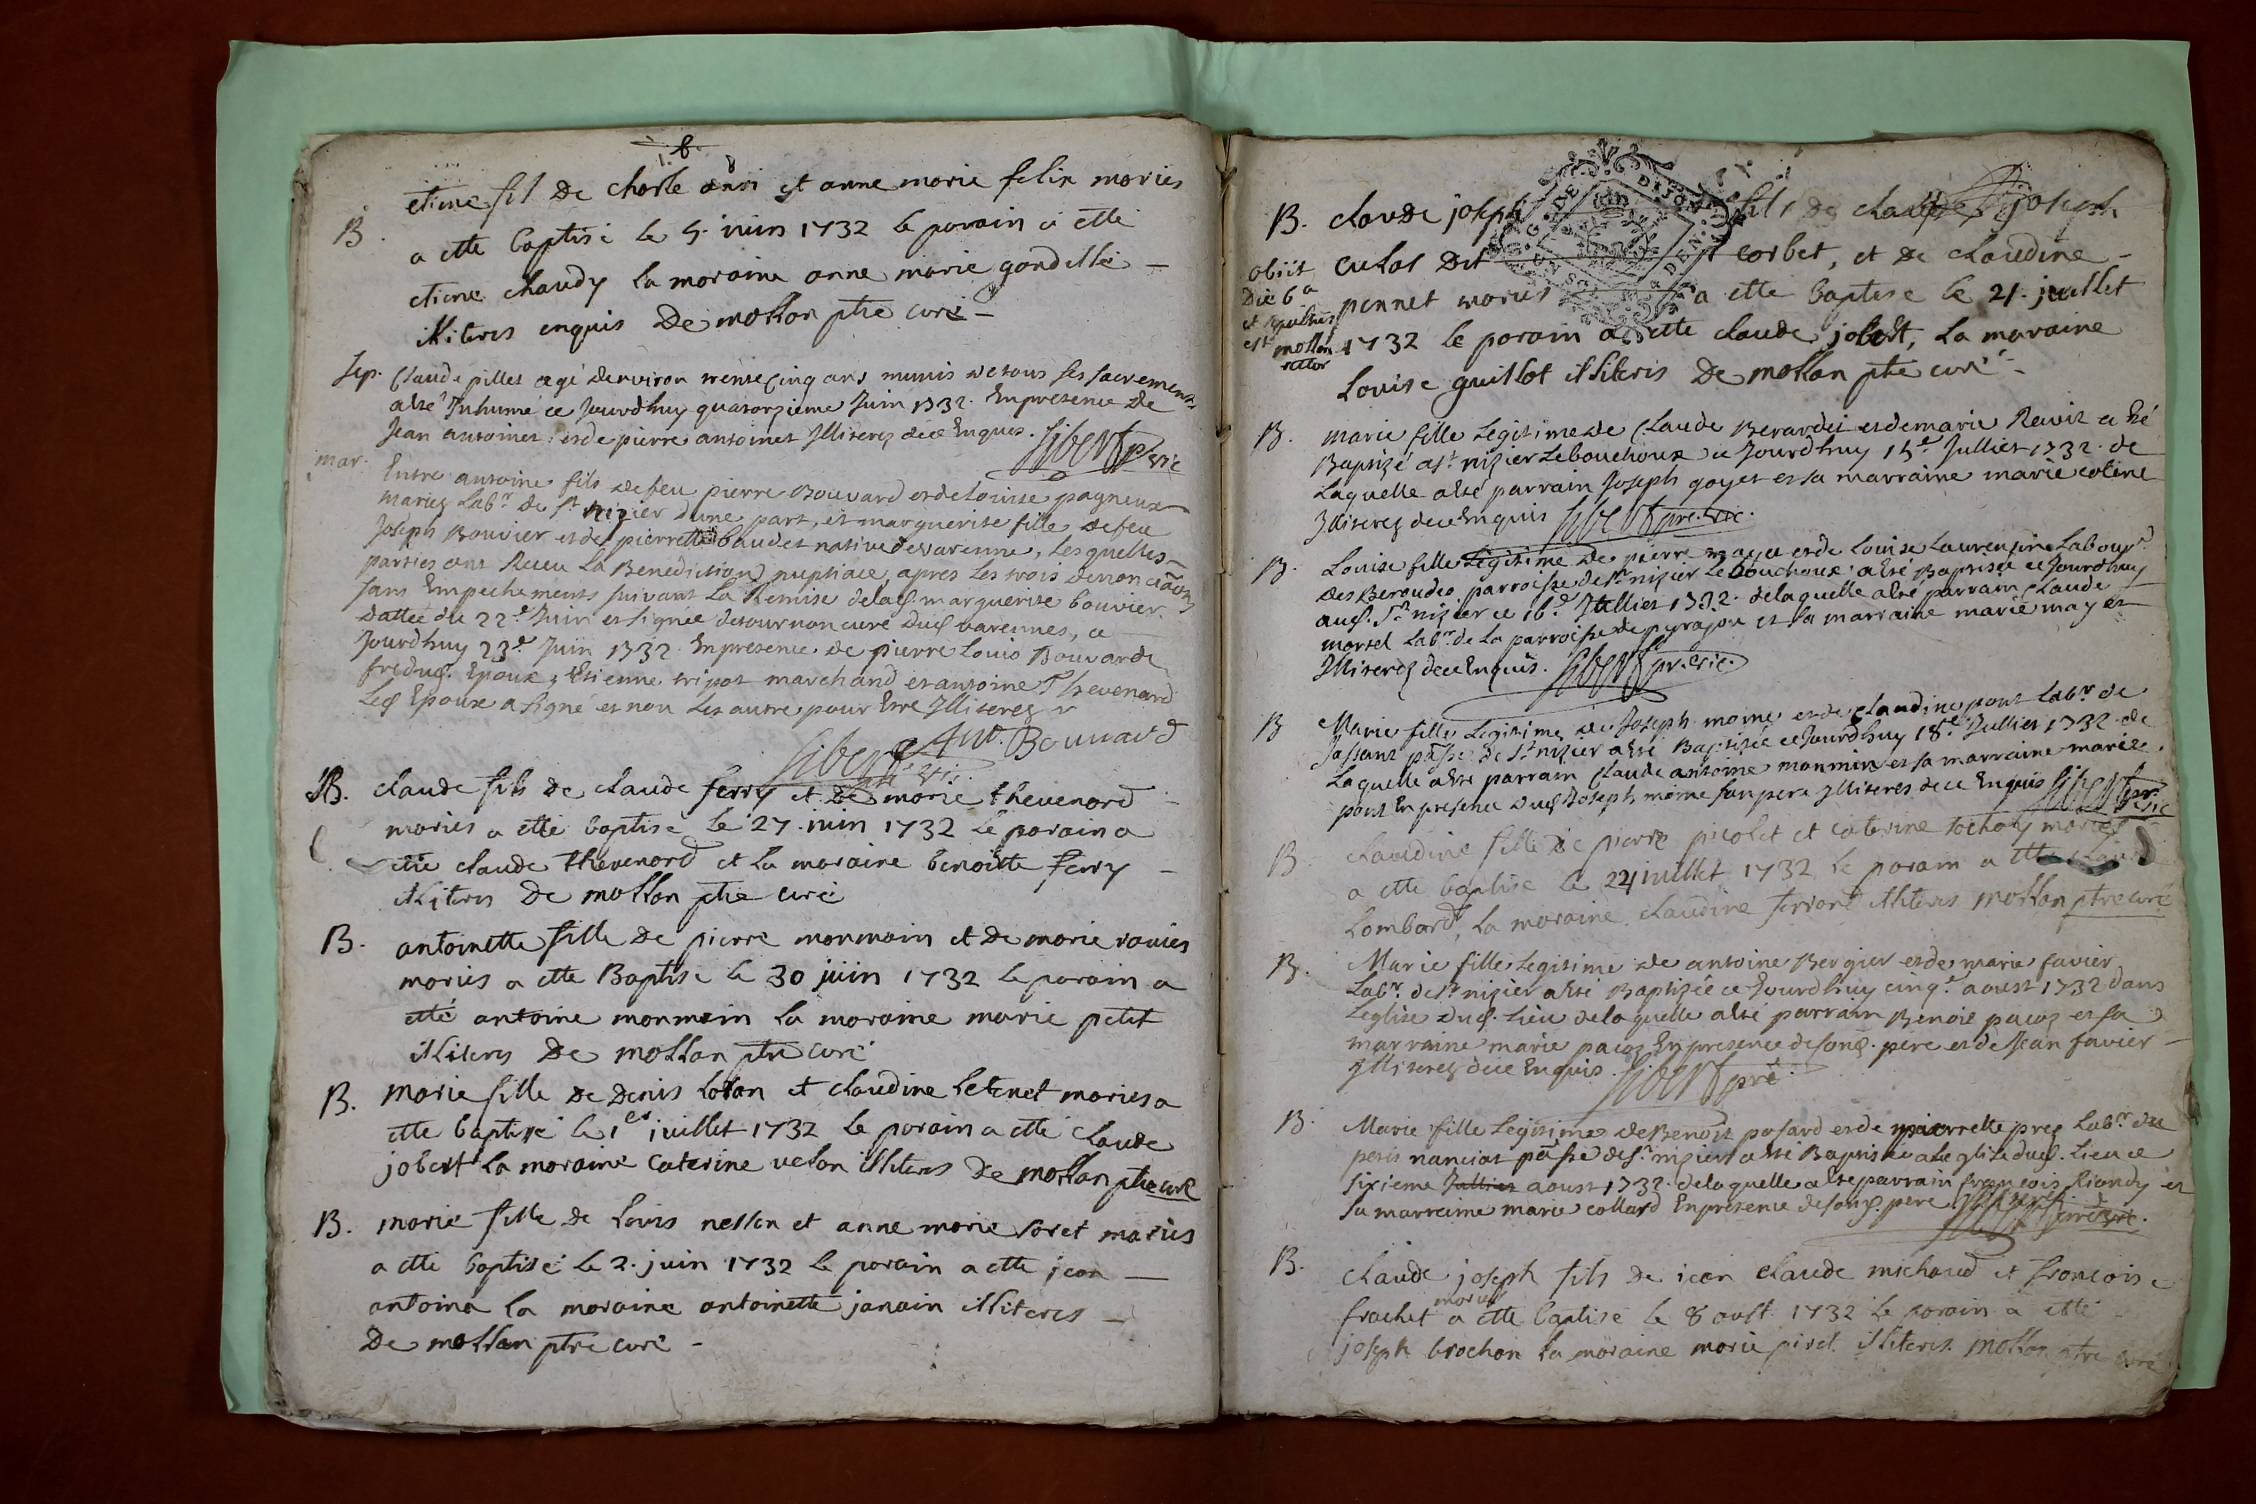 B. etiene fil de charle et anne marie felix maries
a etté baptisé le 5. iuin 1732 le parain a etté
etiene chaudy la maraine anne marie
illiteres enquis De mollan ptre curé
Sep. Claude pillet agé denviron trente Cinq ans munis de tous ses sacrements
a Esté Inhumé ce Jourdhuy quatorzieme Juin 1732. En presence de
Jean antoinet et de pierre antoinet Illiterez de ce Enquis. Sibert p. vic
mar. Entre antoine fils de feu pierre Bouvard et de Louise pagneux
mariez Labr. de st nizier dune part, et marguerite fille de feu
Joseph Bouvier et de pierrette baudet native de varenne, Lesquelles
parties ont Receu La Benediction nuptiale, apres Les trois denonciations
sans Empechements suivant La Remise de lad. marguerite bouvier
dattée du 22e Juin et signée detournon curé dud varennes, ce
Jourdhuy 23e Juin 1732. En presence de pierre Louis Bouvard
fre dud. Epoux, Etienne tripoz marchand et antoine Thevenard
Led Epoux a signé et non Les autre pour Etre Illiterez
Sibert vic. Ant. Bouvard
B. claude fils de claude ferry et de marie thevenard
maries a etté baptisé le 27. iuin 1732 le parain a
etté claude thevenard et la maraine benoitte ferry
illiteres De mollan ptre curé
B. antoinette fille de pierre monmain et de marie ravier
maries a etté Baptisé le 30 juin 1732 le parain a
etté antoine monmain la maraine marie petit
illiteres De mollan ptre curé
B. marie fille de Denis et claudine maries a
etté baptisé le 1er iuillet 1732 le parain a etté claude
jobert la maraine caterine velon illiteres De mollan ptre curé
B. marie fille de Louis nellon et anne marie maries
a etté baptisé le 2. juin 1732 le parain a etté jean
antoine la maraine antoinette janain illiteres
De mollan ptre curé
B. claude joseph fils de claude joseph
culas Dit corbet, et de claudine
pennet maries a etté baptisé le 21. juillet
1732 le parain a etté claude jobert, la maraine
Louise guillot illiteris De mollan ptre curé
obiit
Die 6a
et sepultus
est mollan
rector
B. marie fille Legitime de Claude Berardet et de marie Ravit a Eté
Baptizé a st nizier Lebouchoux ce Jourdhuy 15e Julliet 1732. de
Laquelle a Eté parrain Joseph goyet et sa marraine marie
Illiterez de ce Enquis Sibert pre. vic.
B. Louise fille Legitime de pierre maya et de Louise Laurensin Labour
des Beroudes parroisse de st nizier Le bouchoux a Eté Baptisée ce Jourdhuy
aud. st nizier ce 16e Julliet 1732. de laquelle a Eté parrain Claude
morsel Labr. de La parroisse de pyrajou et sa marraine marie mayet
Illiterez de ce Enquis. Sibert pr. vic.
B Marie fille Legitime de Joseph moine et de Claudine pont Labr de
Jassans psse de st nizier a Eté Baptizée ce Jourdhuy 18e Julliet 1732. de
Laquelle a Eté parrain Claude antoine monmin et sa marraine marie
pont En presence dud Joseph moine son pere Illiteres de ce Enquis Sibert pr. vic
B. claudine fille de pierre picolet et caterine maries
a etté baptisé le 24 iuillet 1732 le parain a etté
Lombard, la maraine claudine ferrand illiteres mollan ptre curé
B. Marie fille Legitime de antoine Bergier et de marie favier
Labr. de st nizier a Eté Baptizée ce Jourdhuy cinq. aoust 1732 dans
Leglise dud. Lieu de laquelle a Eté parrain Benoit pacoz et sa
marraine marie pacoz En presence de sond. pere et de Jean favier
Illiterez de ce Enquis. Sibert pre
B. Marie fille Legitime de Benoit pasard et de pierrette prez Labr. du
petit nanciat psse de st nizier a Eté Baptisée a Leglise dud. Lieu ce
sixieme Julliet aoust 1732. de laquelle a Eté parrain francois Riandy et
sa marreine marie collard En presence de sond. pere Illiterez Sibert pre vic.
B. claude joseph fils de iean claude michaud et francoise
frachet maries a etté baptisé le 8 aust 1732 le parain a etté
joseph brochon la maraine marie illiteres mollan ptre curé